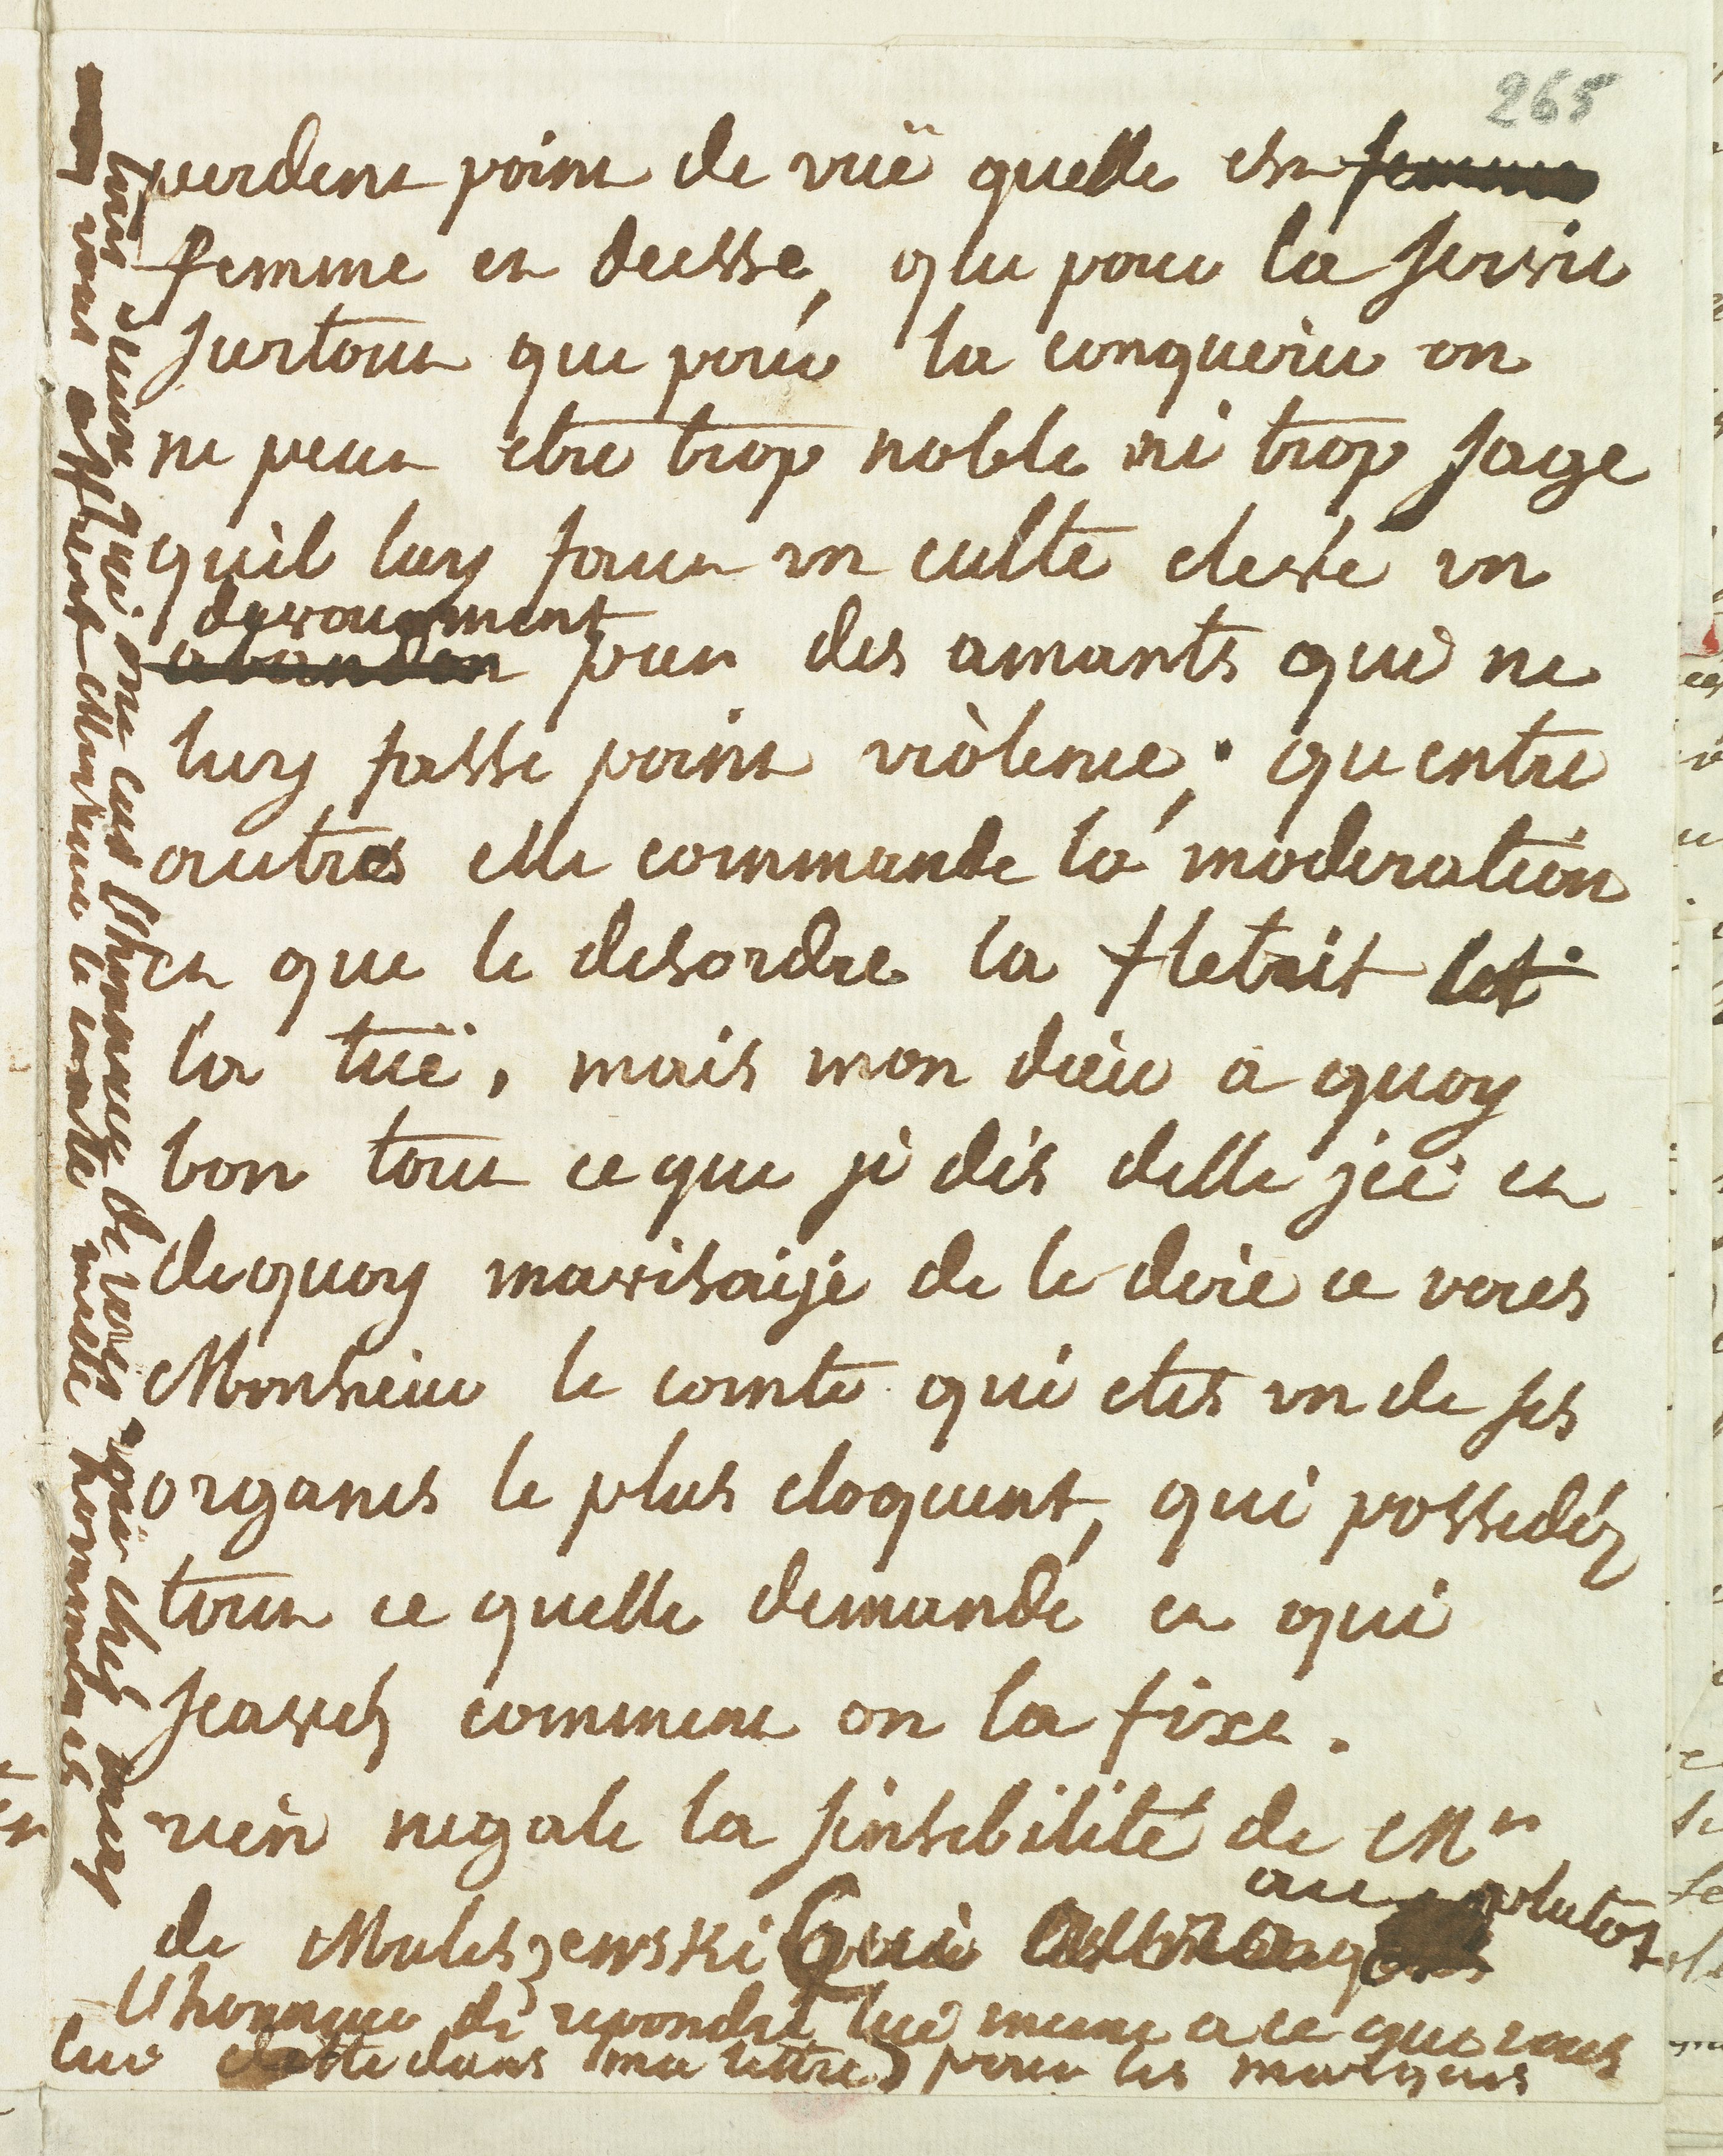 265
perdent point de vuë quelle est femme
femme et deesse, que pour la servir
surtout que pour la conquerir on
ne peut etre trop noble ni trop sage
quil luy faut un culte elevé un
devouement
abandon pur des amants qui ne
luy fasse point violence, quentre
autres elle commande la moderation
et que le desordre la fletrit et
la tuë, mais mon dieu a quoy
bon tout ce que je dis delle jci et
dequoy mavisaije de le dire a vous
Monsieur le comte qui etes un de ses
organes le plus eloquent, qui possedéz
tout ce quelle demande et qui
scavez comment on la fixe.
rien negale la sensibilité de Mr
de Muleszewski Qui
ou plutot
lhonneur de repondre lui meme a ce que vous
lui dans ma lettre) pour les marques
trois Suisses qui ont eus lhonneur de vous voir chez moy
vous offrent Monsieur le comte mille hommages